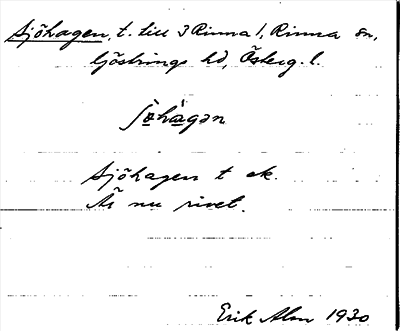 Sjöhagen, t. till 3 Rinna 1, Rinna sn,
Göstrings hd, Österg. l.
Sjöhagen t ek.
Är nu rivet.
Erik Alm 1930